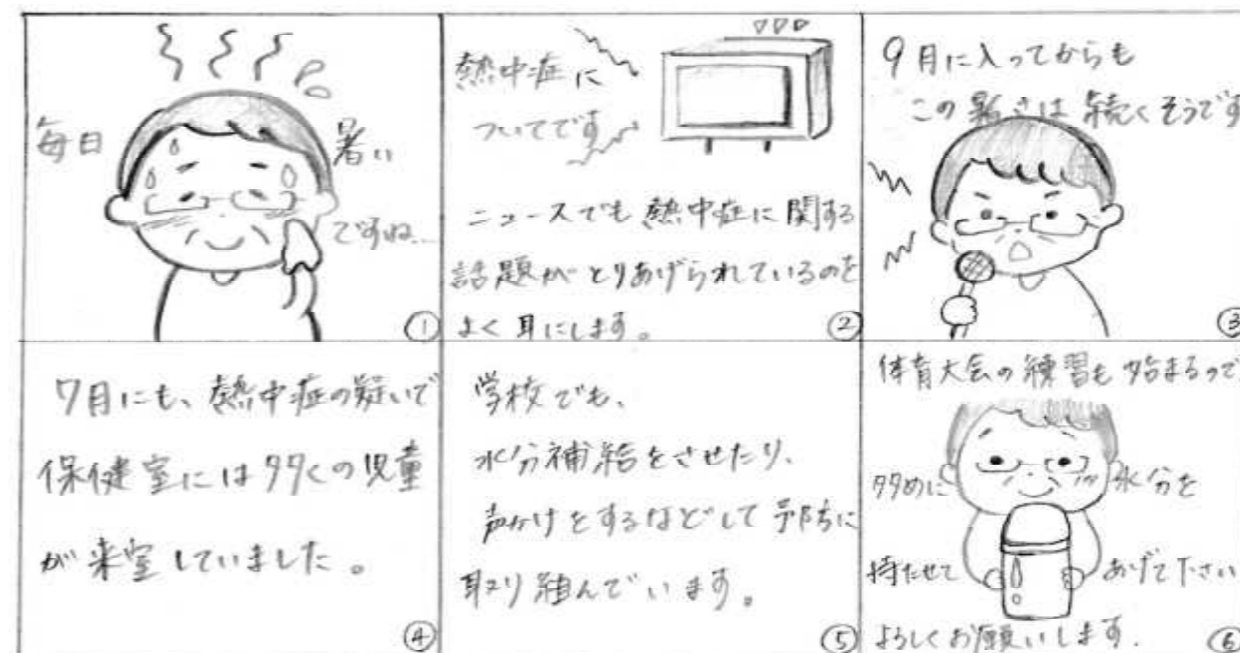 毎日
暑い
ですね…
①
熱中症に
ついてです
ニュースでも熱中症に関する
話題がとりあげられているのを
よく耳にします。
②
9月に入ってからも
この暑さは続くそうです
③
7月にも、熱中症の疑いで
保健室には多くの児童
が来室していました。
④
学校でも、
水分補給をさせたり、
声かけをするなどして予防に
取り組んでいます。
⑤
体育大会の練習も始まるので
多めに
水分を
持たせて
あげて下さい
よろしくお願いします.
⑥